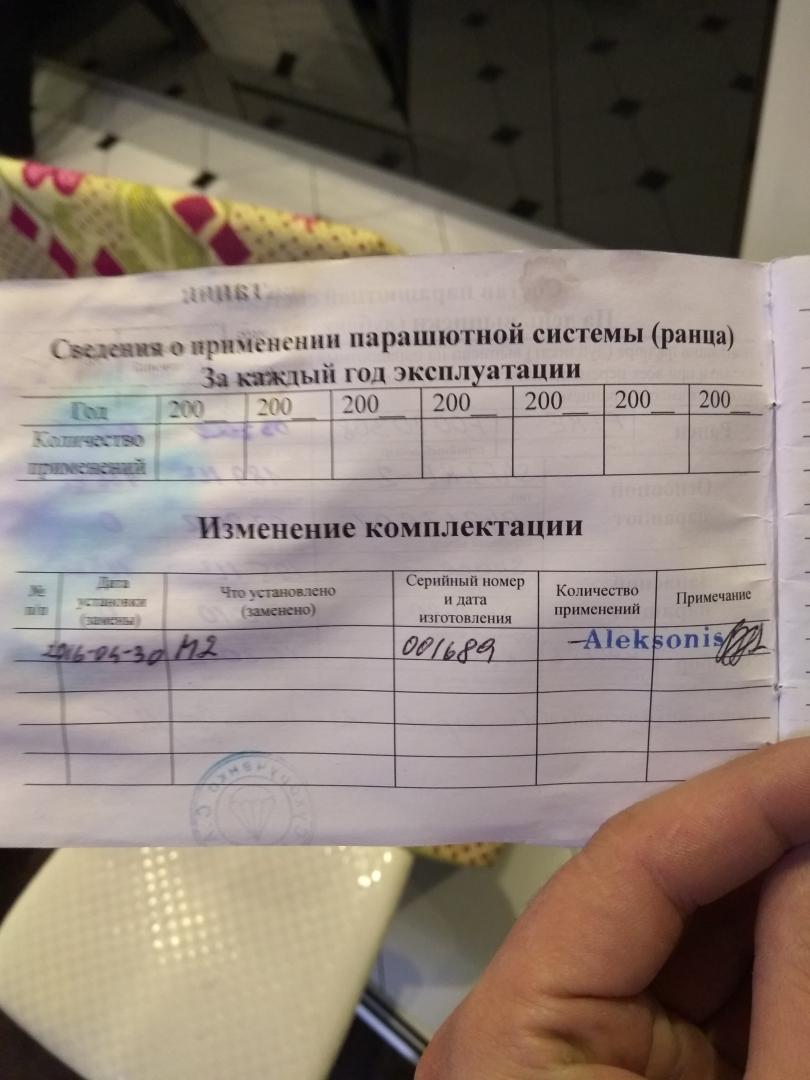 Сведения о применении парашютной системы (ранца)
За каждый год эксплуатации
Год 200__ 200__ 200__ 200__ 200__ 200__ 200__
Количество применений
Изменение комплектации
№ п/п Дата установки (замены) Что установлено (заменено) Серийный номер и дата изготовления Количество применений Примечание
2016-04-30 М2 001689 – Aleksonis